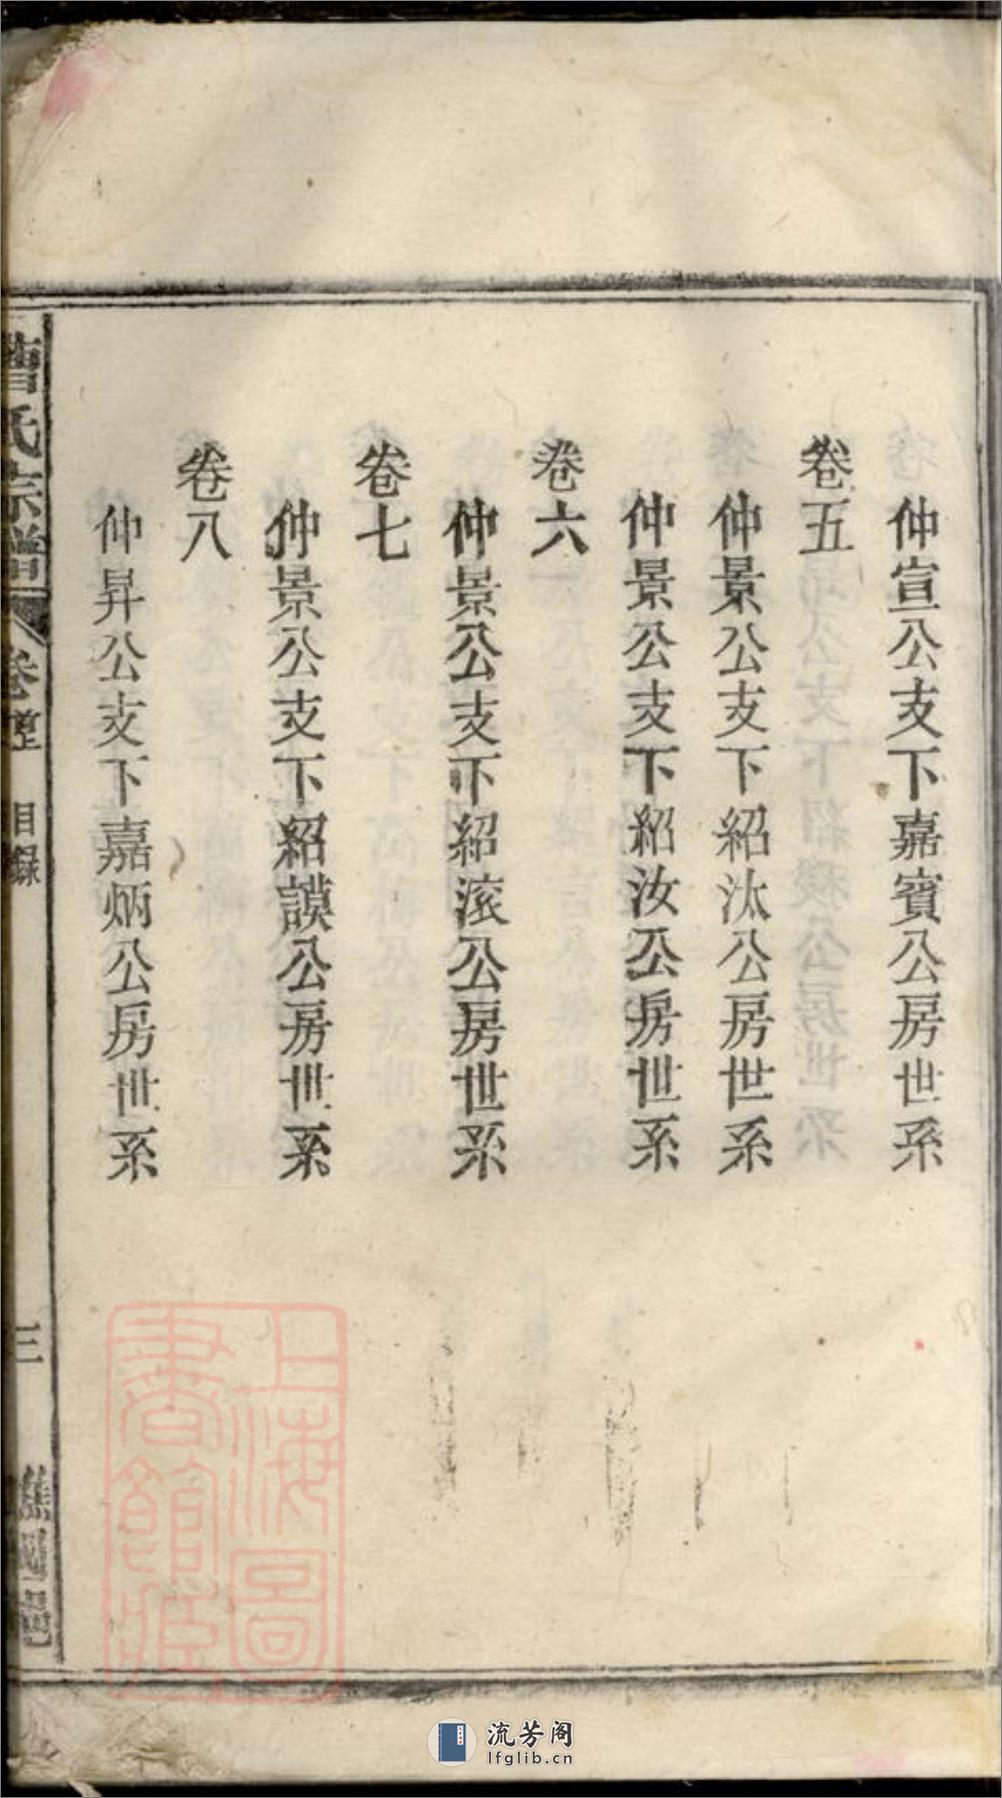 仲宣公支下嘉賓公房世系
卷五
仲景公支下紹汰公房世系
仲景公支下紹汝公房世系
卷六
仲景公支下紹滚公房世系
卷七
仲景公支下紹謨公房世系
卷八
仲昇公支下嘉炳公房世系
曹氏宗譜
卷壹
目録
三
譙國
上海圖
書館
流芳阁
lfglib.cn